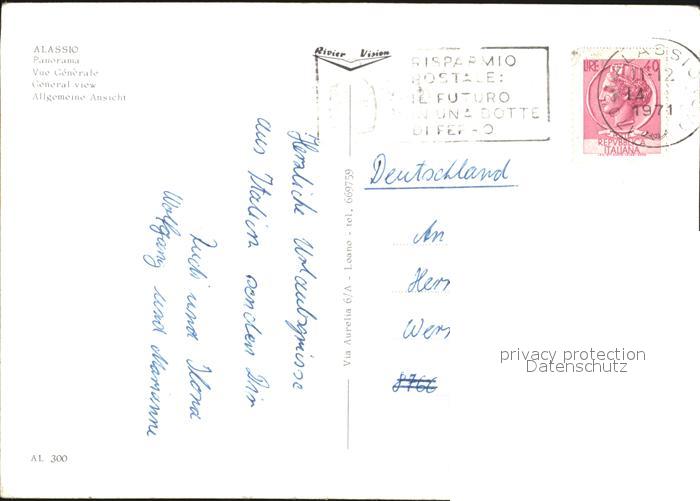 ALASSIO
Panorama
Vue Générale
General view
Allgemeine Ansicht
Rivier Vision
RISPARMIO
POSTALE:
IL FUTURO
IN UNA BOTTE
DI FERRO
ALASSIO
11-12
14
1971
LIRE 40
REPVBBLICA
ITALIANA
Herzliche Urlaubsgrüsse
aus Italien senden Dir
Rudi und Ilona
Wolfgang und Marianne
Via Aurelia 6/A - Loano - tel. 669759
Deutschland
An
Herr
Wern
8766
privacy protection
Datenschutz
AL 300